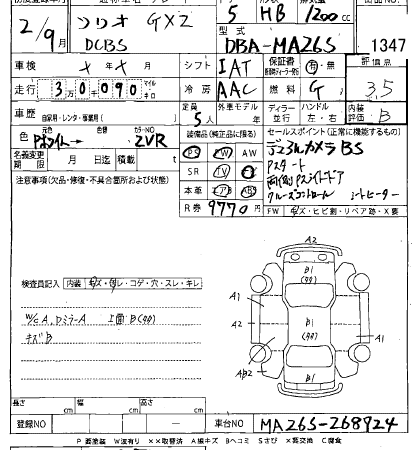 5 HB 1200cc
2/9月 ソリオ GXZ
DCBS
型式
DBA-MA26S
1347
車検 年 月 シフト IAT 保証書 有・無 評価点
走行 3万0千090 マイル キロ 冷房 AAC 燃料 G 3.5
車歴 自家用・レンタ・事業用( ) 定員 5人 外車モデル 年 ディーラー 並行 ハンドル 左・右 内装評価 B
色 元色 Pホワイト→ カラーNO ZVR
装備品(純正品に限る) セールスポイント(正常に機能するもの)
名義変更期限 月 日迄 積載 t
PS PW AW デュアルカメラBS
注意事項(欠品・修復・不具合箇所およその他)
SR TV
Pスタート
本革 エアB ABS
両側Pスライドドア
クルーズコントロール シートヒーター
R券 9770円
FW キズ・ヒビ割・リペア跡・X要
検査員記入 内装 キズ・切レ・コゲ・穴・スレ・キレ
W/C A, Dミラー A
キズB
A2
B1
A1
A2
B1
A1
AB2
B1
長さ cm 幅 cm 高さ cm
登録NO 車台NO MA26S-268924
P 要塗装 W波有り ××取替済 A線キズ Bヘコミ Sさび ×要交換 C腐食